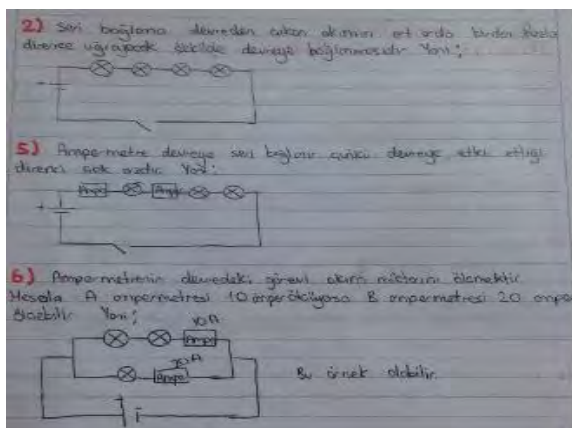 2) Seri bağlama devreden çıkan akımın art arda birden fazla
dirence uğrayacak şekilde devreye bağlanmasıdır Yani;
5) Ampermetre devreye seri bağlanır çünkü devreye etki ettiği
direnci çok azdır. Yani:
Amper
Amper
6) Ampermetrenin devredeki görevi akım miktarını ölçmektir.
Mesela A ampermetresi 10 amper ölçüyorsa B ampermetresi 20 amper
ölçebilir Yani;
10A
Amper
20A
Amper
Bu örnek olabilir.